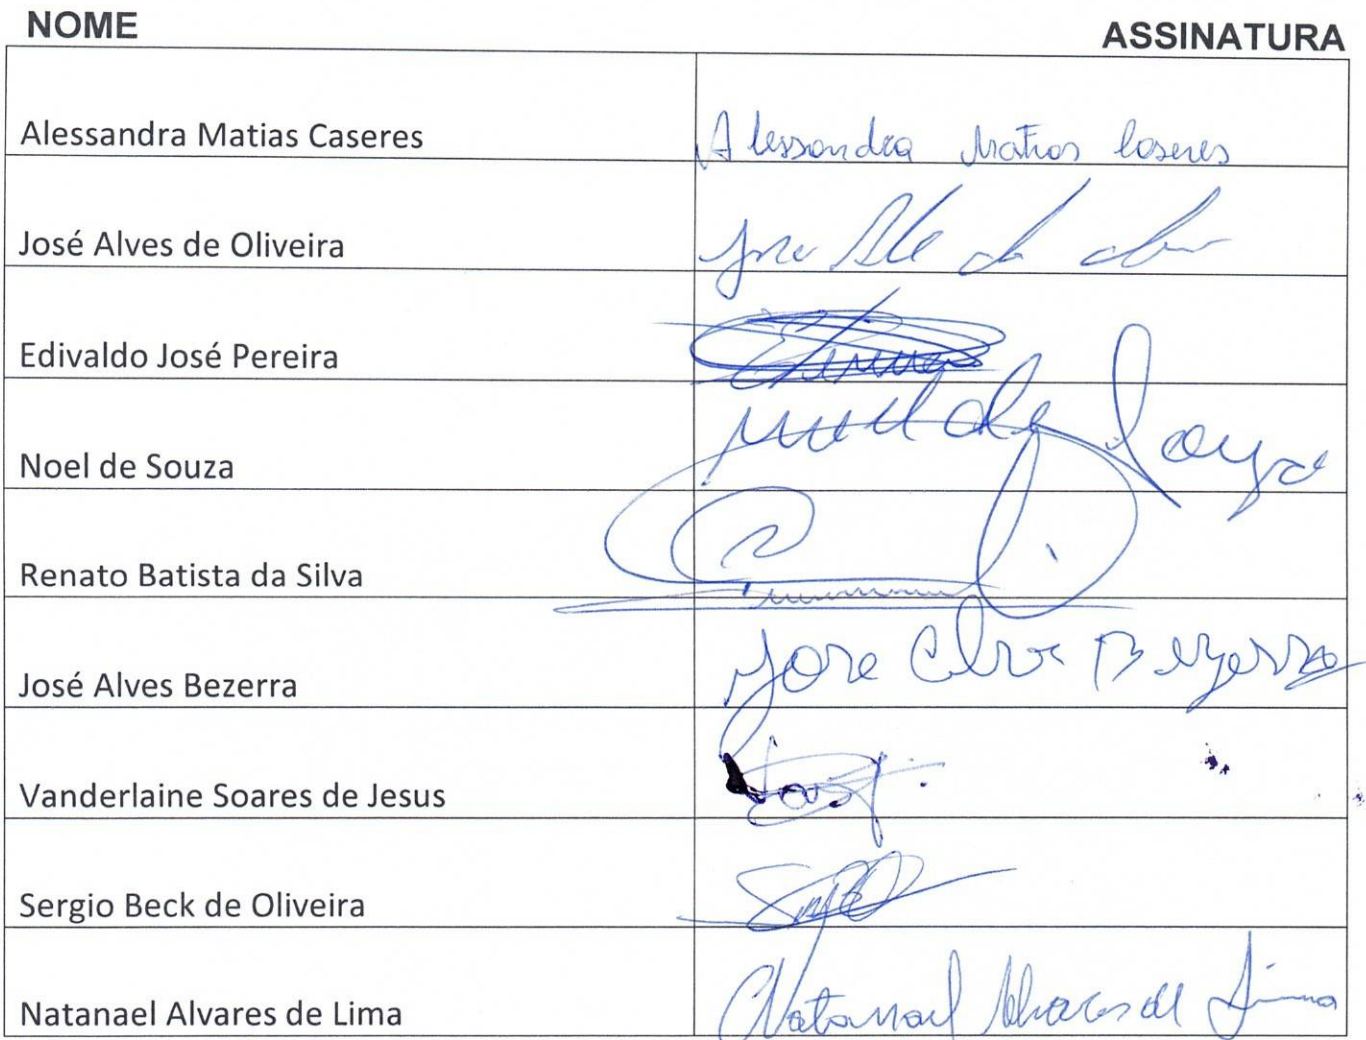 NOME ASSINATURA
Alessandra Matias Caseres Alessandra Matias Caseres
José Alves de Oliveira
Edivaldo José Pereira
Noel de Souza Noel de Souza
Renato Batista da Silva
José Alves Bezerra Jose Bezerra
Vanderlaine Soares de Jesus
Sergio Beck de Oliveira
Natanael Alvares de Lima Natanael Alvares de Lima